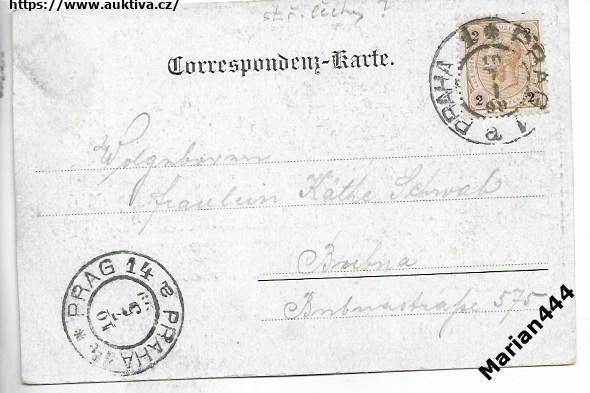 https://www.auktiva.cz/
Correspondenz-Karte.
2 2 2
PRAHA 1 * PRAG 1 a
Wolgeboren
Fräulein Käthe Schwab
Bubna
Bubnastraße 575
* PRAG 14 a PRAHA 14
5
10
Marian444